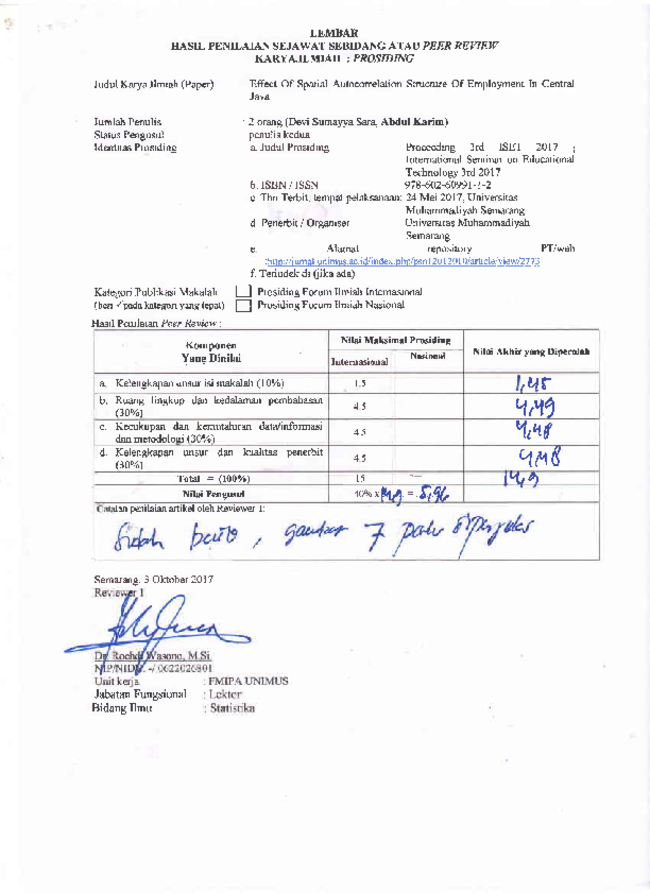 LEMBAR
HASIL PENILAIAN SEJAWAT SEBIDANG ATAU PEER REVIEW
KARYA ILMIAH : PROSIDING
Judul Karya Ilmiah (Paper) : Effect Of Spatial Autocorrelation Structure Of Employment In Central
Java
Jumlah Penulis : 2 orang (Devi Sumayya Sara, Abdul Karim)
Status Pengusul penulis kedua
Identitas Prosiding a. Judul Prosiding : Proceeding 3rd ISET 2017 ;
International Seminar on Educational
Technology 3rd 2017
b. ISBN / ISSN
c. Thn Terbit, tempat pelaksanaan: 24 Mei 2017, Universitas
Muhammadiyah Semarang
d. Penerbit / Organiser Universitas Muhammadiyah
Semarang
e. Alamat repository PT/web
f. Terindek di (jika ada)
Kategori Publikasi Makalah Prosiding Forum Ilmiah Internasional
(beri ✓pada kategori yang tepat) Prosiding Forum Ilmiah Nasional
Hasil Penilaian Peer Review :
Komponen
Yang Dinilai
Nilai Maksimal Prosiding
Internasional Nasional
Nilai Akhir yang Diperoleh
a. Kelengkapan unsur isi makalah (10%) 1.5 1,45
b. Ruang lingkup dan kedalaman pembahasan
(30%) 4.5 4,49
c. Kecukupan dan kemutahiran data/informasi
dan metodologi (30%) 4.5 4,48
d. Kelengkapan unsur dan kualitas penerbit
(30%) 4.5 4,48
Total = (100%) 15 14,9
Nilai Pengusul 40% x 14,9 = 5,96
Catatan penilaian artikel oleh Reviewer 1:
Sudah baik, gambar 7 perlu diperjelas
Semarang, 3 Oktober 2017
Reviewer 1
Dr. Rochdi Wasono, M.Si
NIP/NIDN. -/ 0622026801
Unit kerja : FMIPA UNIMUS
Jabatan Fungsional : Lektor
Bidang Ilmu : Statistika